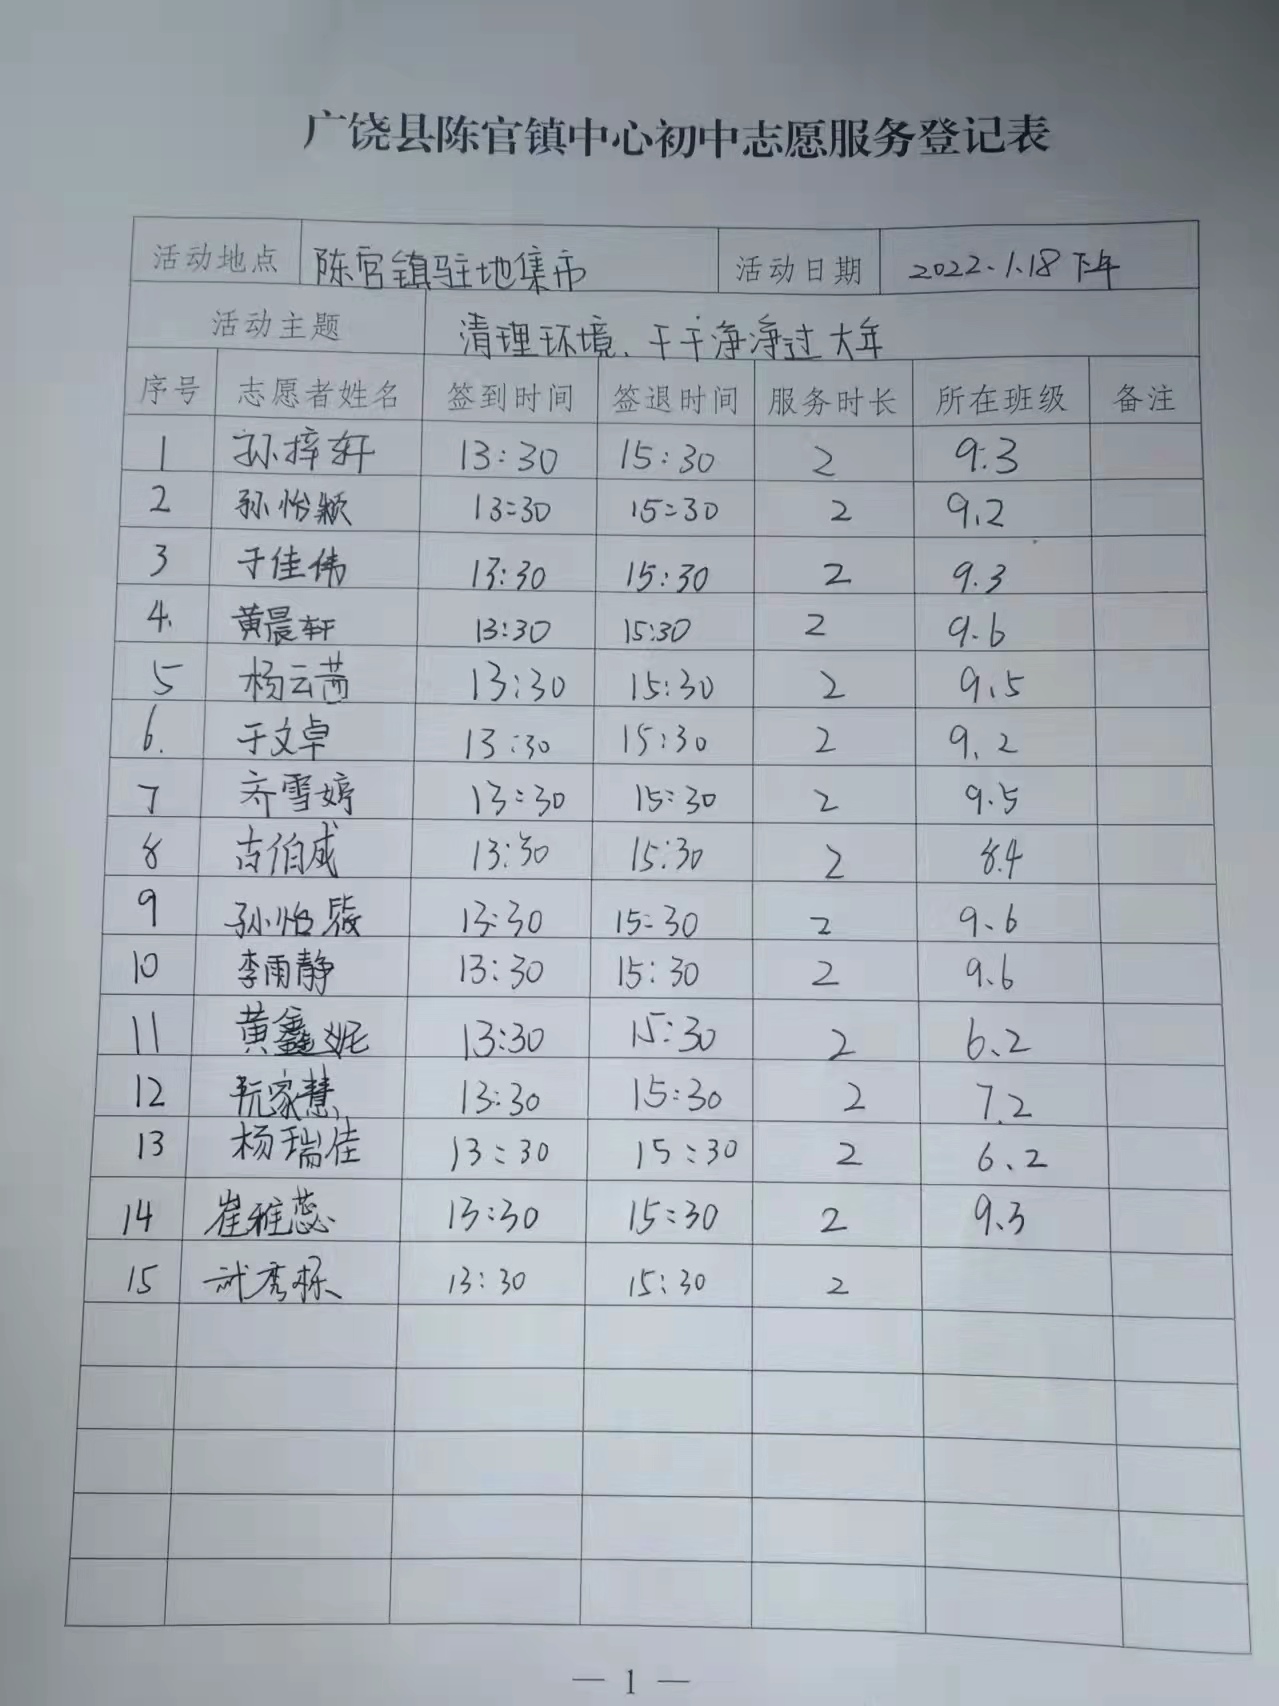 广饶县陈官镇中心初中志愿服务登记表
活动地点 陈官镇驻地集市 活动日期 2022.1.18下午
活动主题 清理环境、干干净净过大年
序号 志愿者姓名 签到时间 签退时间 服务时长 所在班级 备注
1 孙梓轩 13:30 15:30 2 9.3
2 孙怡颖 13:30 15:30 2 9.2
3 于佳伟 13:30 15:30 2 9.3
4. 黄晨轩 13:30 15:30 2 9.6
5 杨云茜 13:30 15:30 2 9.5
6. 于文卓 13:30 15:30 2 9.2
7 齐雪婷 13:30 15:30 2 9.5
8 古伯威 13:30 15:30 2 8.4
9 孙怡 13:30 15:30 2 9.6
10 李雨静 13:30 15:30 2 9.6
11 黄鑫妮 13:30 15:30 2 6.2
12 阮家慧 13:30 15:30 2 7.2
13 杨瑞佳 13:30 15:30 2 6.2
14 崔雅蕊 13:30 15:30 2 9.3
15 13:30 15:30 2
— 1 —